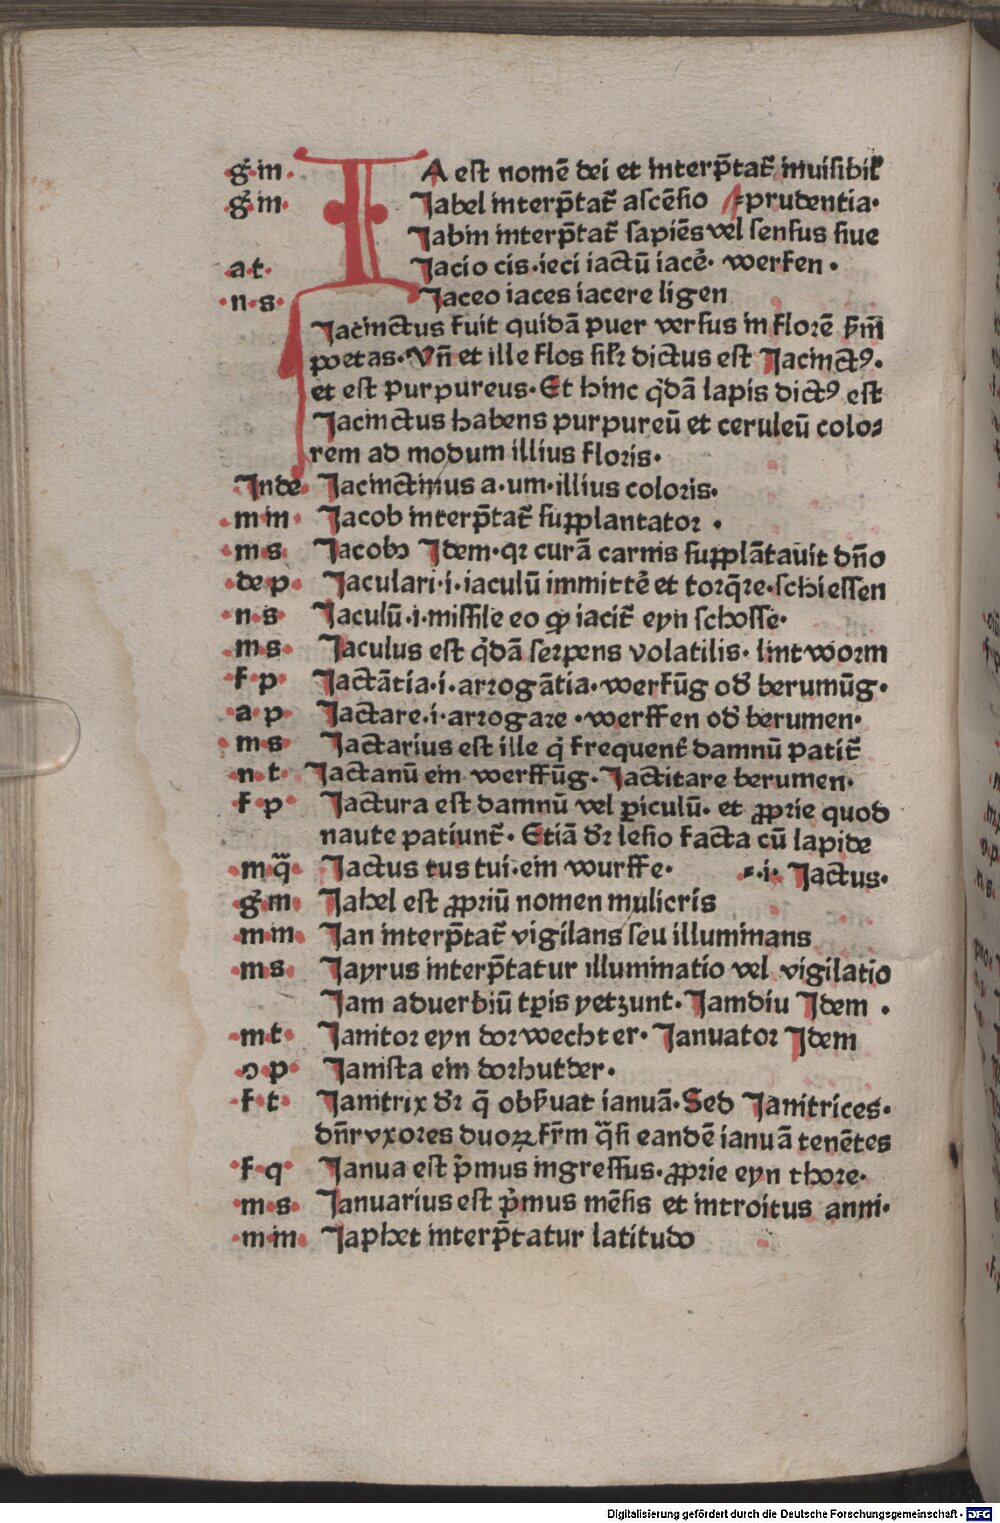 ·g̕·m· IA est nomē dei et interp̄tat᷑ inuisibil᷑
·g̕·m· Iabel interp̄tat᷑ ascēsio ⸗prudentia·
Iabin interp̄tat᷑ sapiēs vel sensus siue
·a·t· Iacio cis·ieci iactū iace᷑· werfen·
·n·s· Iaceo iaces iacere ligen
Iacinctus fuit quidā puer versus in florē ẜm̄
poetas·Vn̄ et ille flos silr᷑ dictus est Iacinctꝰ·
et est purpureus·Et hinc q̇dā lapis dictꝰ est
Iacinctus habens purpureū et ceruleū colo⸗
rem ad modum illius floris·
Inde Iacinctinus a·um·illius coloris·
·m·m· Iacob interp̄tat᷑ supplantator·
·m·s· Iacobꝰ Idem·qꝛ curā carnis supplātauit dn̄o
·de·p· Iaculari·i·iaculū immitte᷑ et torq̄re·schiessen
·n·s· Iaculū·i·missile eo ꝙ iacit᷑ eyn schosse·
·m·s· Iaculus est q̇dā serpens volatilis·lintworm
·f·p· Iactātia·i·arrogātia·werfūg od̕ berumūg·
·a·p· Iactare·i·arrogare·werffen od̕ berumen·
·m·s· Iactarius est ille q̇ frequent᷑ damnū patit᷑
·n·t· Iactanū ein werffūg·Iactitare berumen·
·f·p· Iactura est damnū vel ꝑiculū·et ꝓprie quod
naute patiunt᷑·Etiā dr̄ lesio facta cū lapide
·m·q̄· Iactus tus tui·ein wurffe· ⸗·i·Iactus·
·g̕·m· Iahel est ꝓpriū nomen mulieris
·m·m· Ian interp̄tat᷑ vigilans seu illuminans
·m·s· Iayrus interp̄tatur illuminatio vel vigilatio
Iam aduerbiū tp̄is yetzunt·Iamdiu Idem·
·m·t· Ianitor eyn dorwechter·Ianuator Idem
·ɔ·p· Ianista ein dorhutder·
·f·t· Ianitrix dr̄ q̄ obẜuat ianuā·Sed Ianitrices·
dn̄r vxores duoꝝ fr̄m q̄si eandē ianuā tenētes
·f·q· Ianua est p̄mus ingressus·ꝓprie eyn thore·
·m·s· Ianuarius est p̄mus mēsis et introitus anni·
·m·m· Iaphet interp̄tatur latitudo
Digitalisierung gefördert durch die Deutsche Forschungsgemeinschaft - DFG